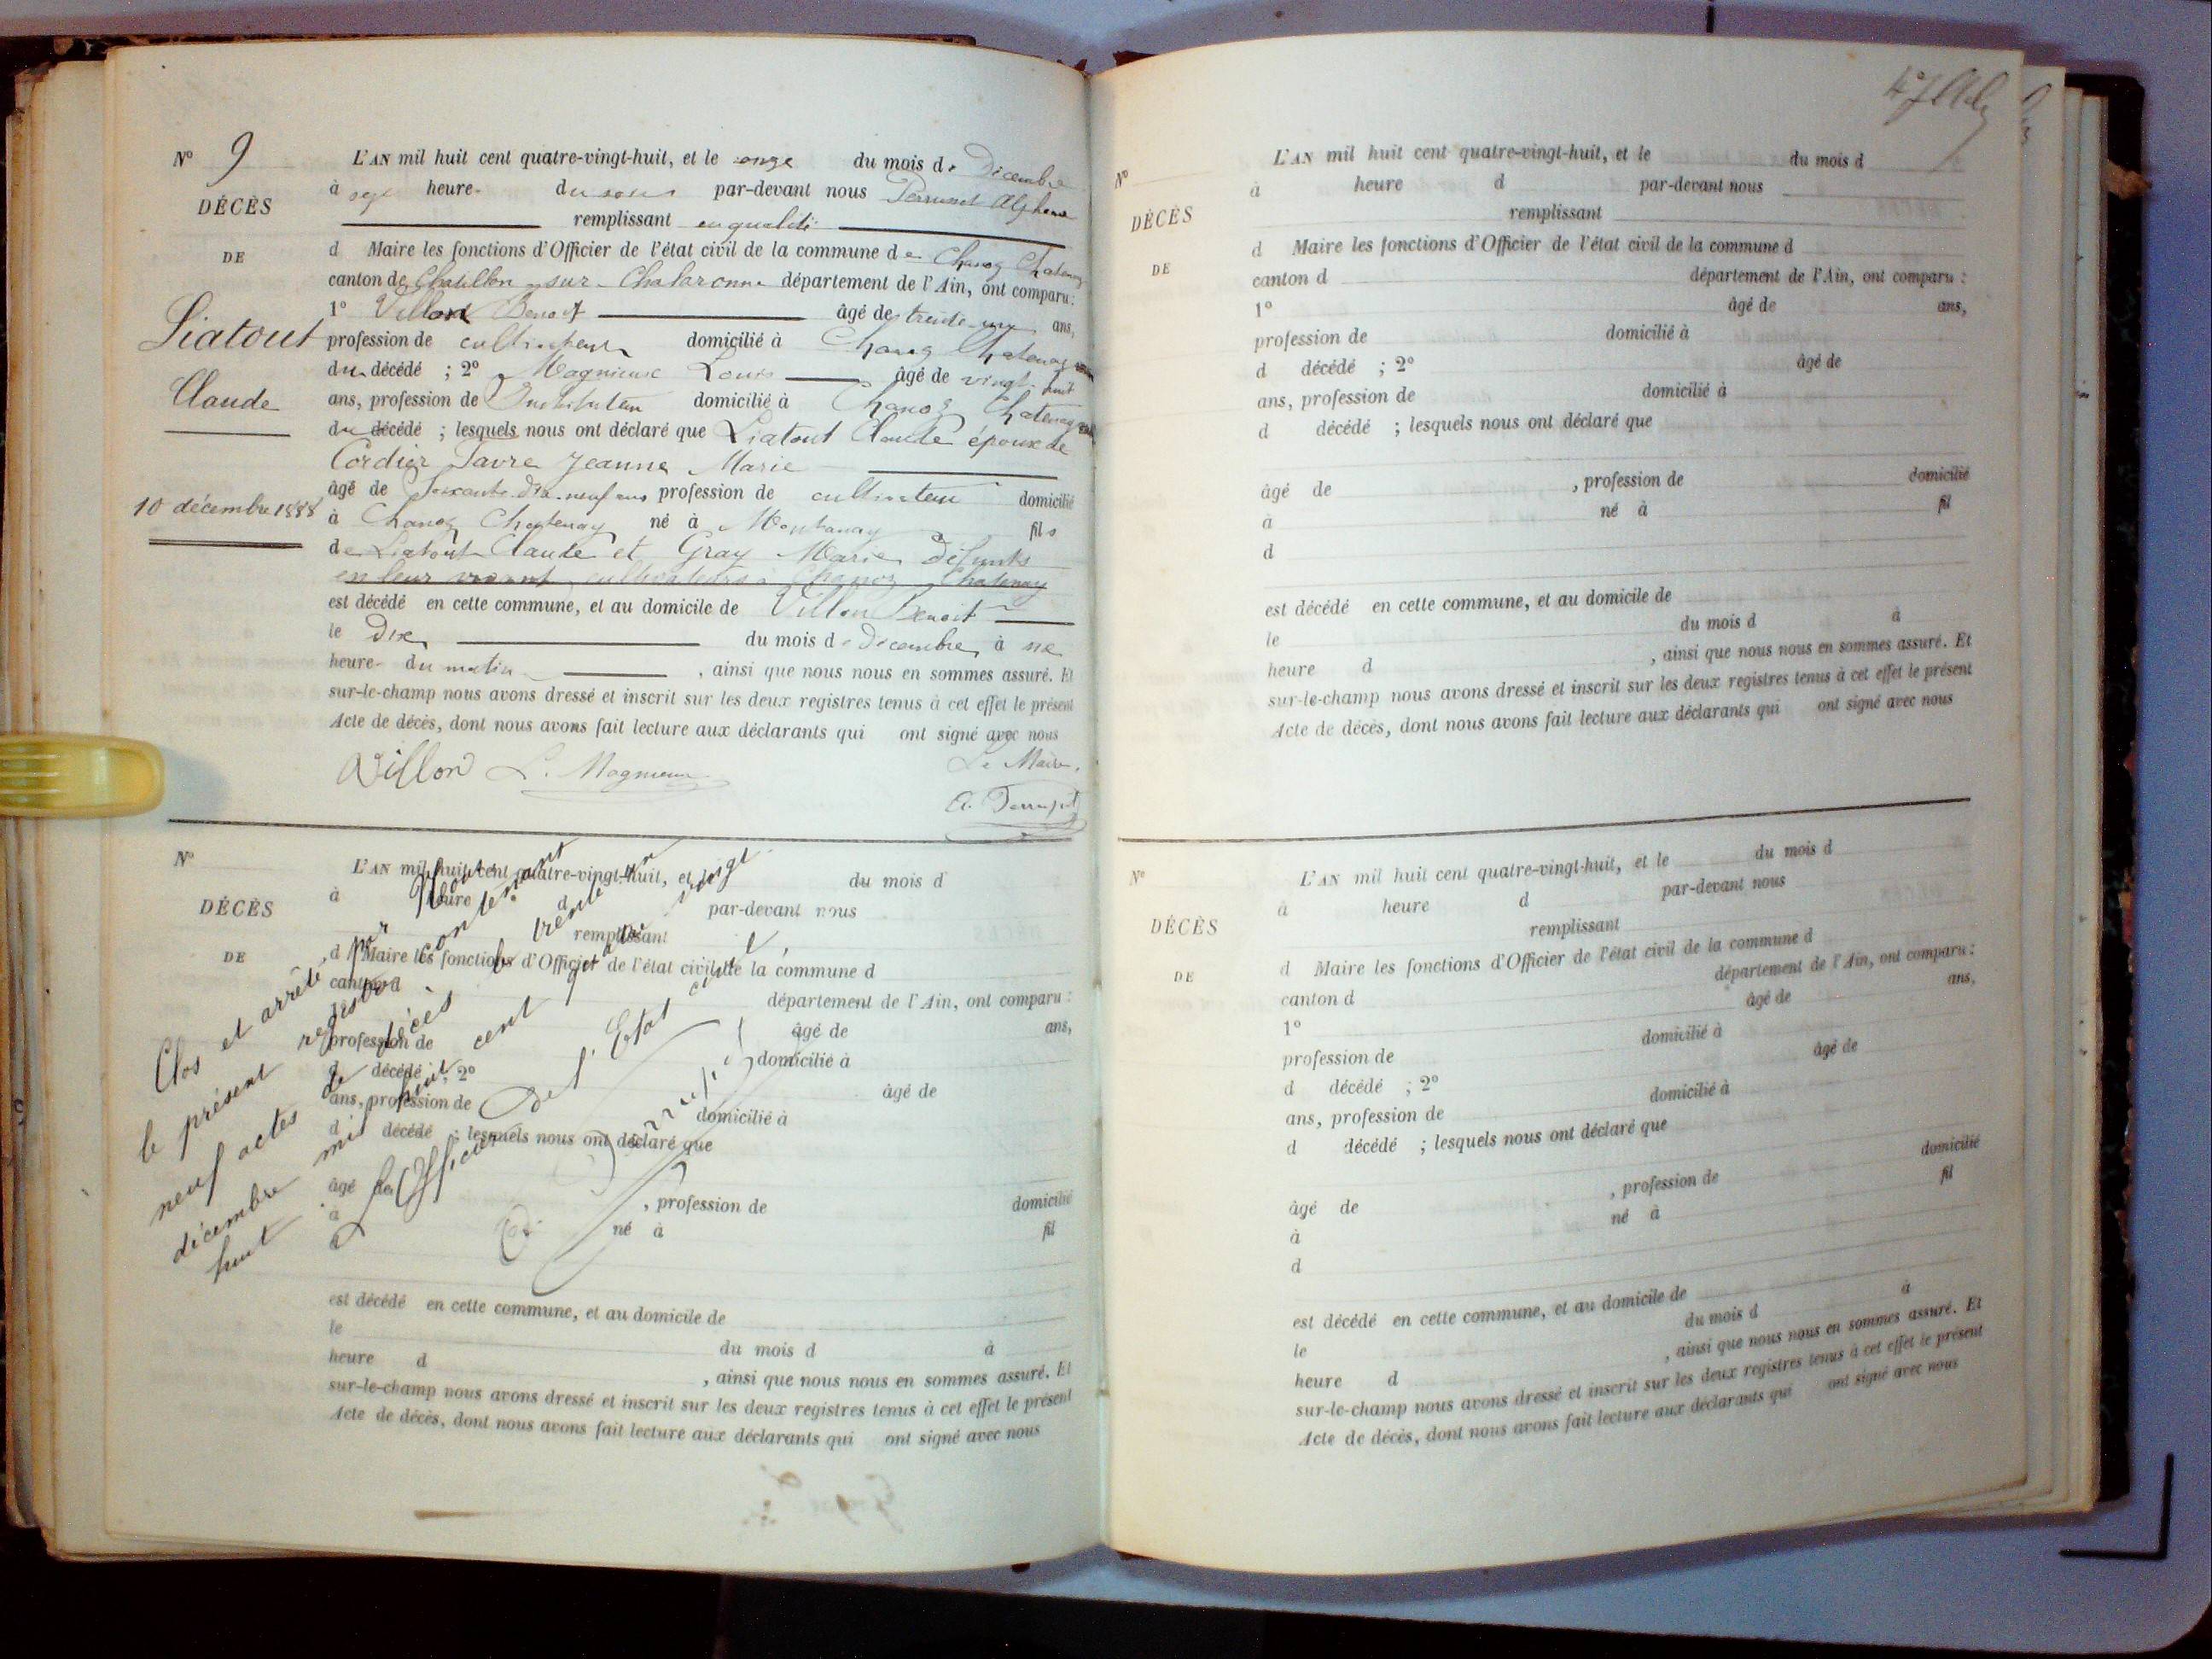 Nº 9
DÉCÈS
DE
Liatout
Claude
10 décembre 1888
L'AN mil huit cent quatre-vingt-huit, et le onze du mois de Décembre
à sept heure du soir par-devant nous Perruset Alphonse
remplissant en qualité
d Maire les fonctions d'Officier de l'état civil de la commune de Chanoz Chatenay
canton de Chatillon sur Chalaronne département de l'Ain, ont comparu :
1º Villon Benoit âgé de trente un ans,
profession de cultivateur domicilié à Chanoz Chatenay
du décédé ; 2º Magnieux Louis âgé de vingt huit
ans, profession de Instituteur domicilié à Chanoz Chatenay
du décédé ; lesquels nous ont déclaré que Liatout Claude époux de
Cordier Favre Jeanne Marie
âgé de Soixante dix-neuf ans profession de cultivateur domicilié
à Chanoz Chatenay né à Montanay fils
de Liatout Claude et Gray Marie défunts
en leur vivant cultivateurs à Chanoz Chatenay
est décédé en cette commune, et au domicile de Villon Benoit
le Dix du mois de décembre, à
heure du matin , ainsi que nous nous en sommes assuré. Et
sur-le-champ nous avons dressé et inscrit sur les deux registres tenus à cet effet le présent
Acte de décès, dont nous avons fait lecture aux déclarants qui ont signé avec nous
Villon L. Magnieux Le Maire,
A. Perruset
Nº
DÉCÈS
DE
L'AN mil huit cent quatre-vingt-huit, et le du mois d
à heure d par-devant nous
remplissant
d Maire les fonctions d'Officier de l'état civil de la commune d
canton d
département de l'Ain, ont comparu :
âgé de ans,
profession de domicilié à
d décédé ; 2º âgé de
ans, profession de domicilié à
d décédé ; lesquels nous ont déclaré que
âgé de , profession de domicilié
à né à fil
d
est décédé en cette commune, et au domicile de
le du mois d à
heure d , ainsi que nous nous en sommes assuré. Et
sur-le-champ nous avons dressé et inscrit sur les deux registres tenus à cet effet le présent
Acte de décès, dont nous avons fait lecture aux déclarants qui ont signé avec nous
Clos et arrêté par Nous
le présent registre contenant
neuf actes de décès le trente un
décembre mil huit cent quatre vingt
huit
L'Officier de l'Etat civil,
A. Perruset
Nº
DÉCÈS
DE
L'AN mil huit cent quatre-vingt-huit, et le du mois d
à heure d par-devant nous
remplissant
d Maire les fonctions d'Officier de l'état civil de la commune d
canton d département de l'Ain, ont comparu :
1º âgé de ans,
profession de domicilié à
d décédé ; 2º âgé de
ans, profession de domicilié à
d décédé ; lesquels nous ont déclaré que
âgé de , profession de domicilié
à né à fil
d
est décédé en cette commune, et au domicile de
le du mois d à
heure d , ainsi que nous nous en sommes assuré. Et
sur-le-champ nous avons dressé et inscrit sur les deux registres tenus à cet effet le présent
Acte de décès, dont nous avons fait lecture aux déclarants qui ont signé avec nous
Nº
DÉCÈS
DE
L'AN mil huit cent quatre-vingt-huit, et le du mois d
à heure d par-devant nous
remplissant
d Maire les fonctions d'Officier de l'état civil de la commune d
canton d département de l'Ain, ont comparu :
1º âgé de ans,
profession de domicilié à
d décédé ; 2º âgé de
ans, profession de domicilié à
d décédé ; lesquels nous ont déclaré que
âgé de , profession de domicilié
à né à fil
d
est décédé en cette commune, et au domicile de
le du mois d à
heure d , ainsi que nous nous en sommes assuré. Et
sur-le-champ nous avons dressé et inscrit sur les deux registres tenus à cet effet le présent
Acte de décès, dont nous avons fait lecture aux déclarants qui ont signé avec nous